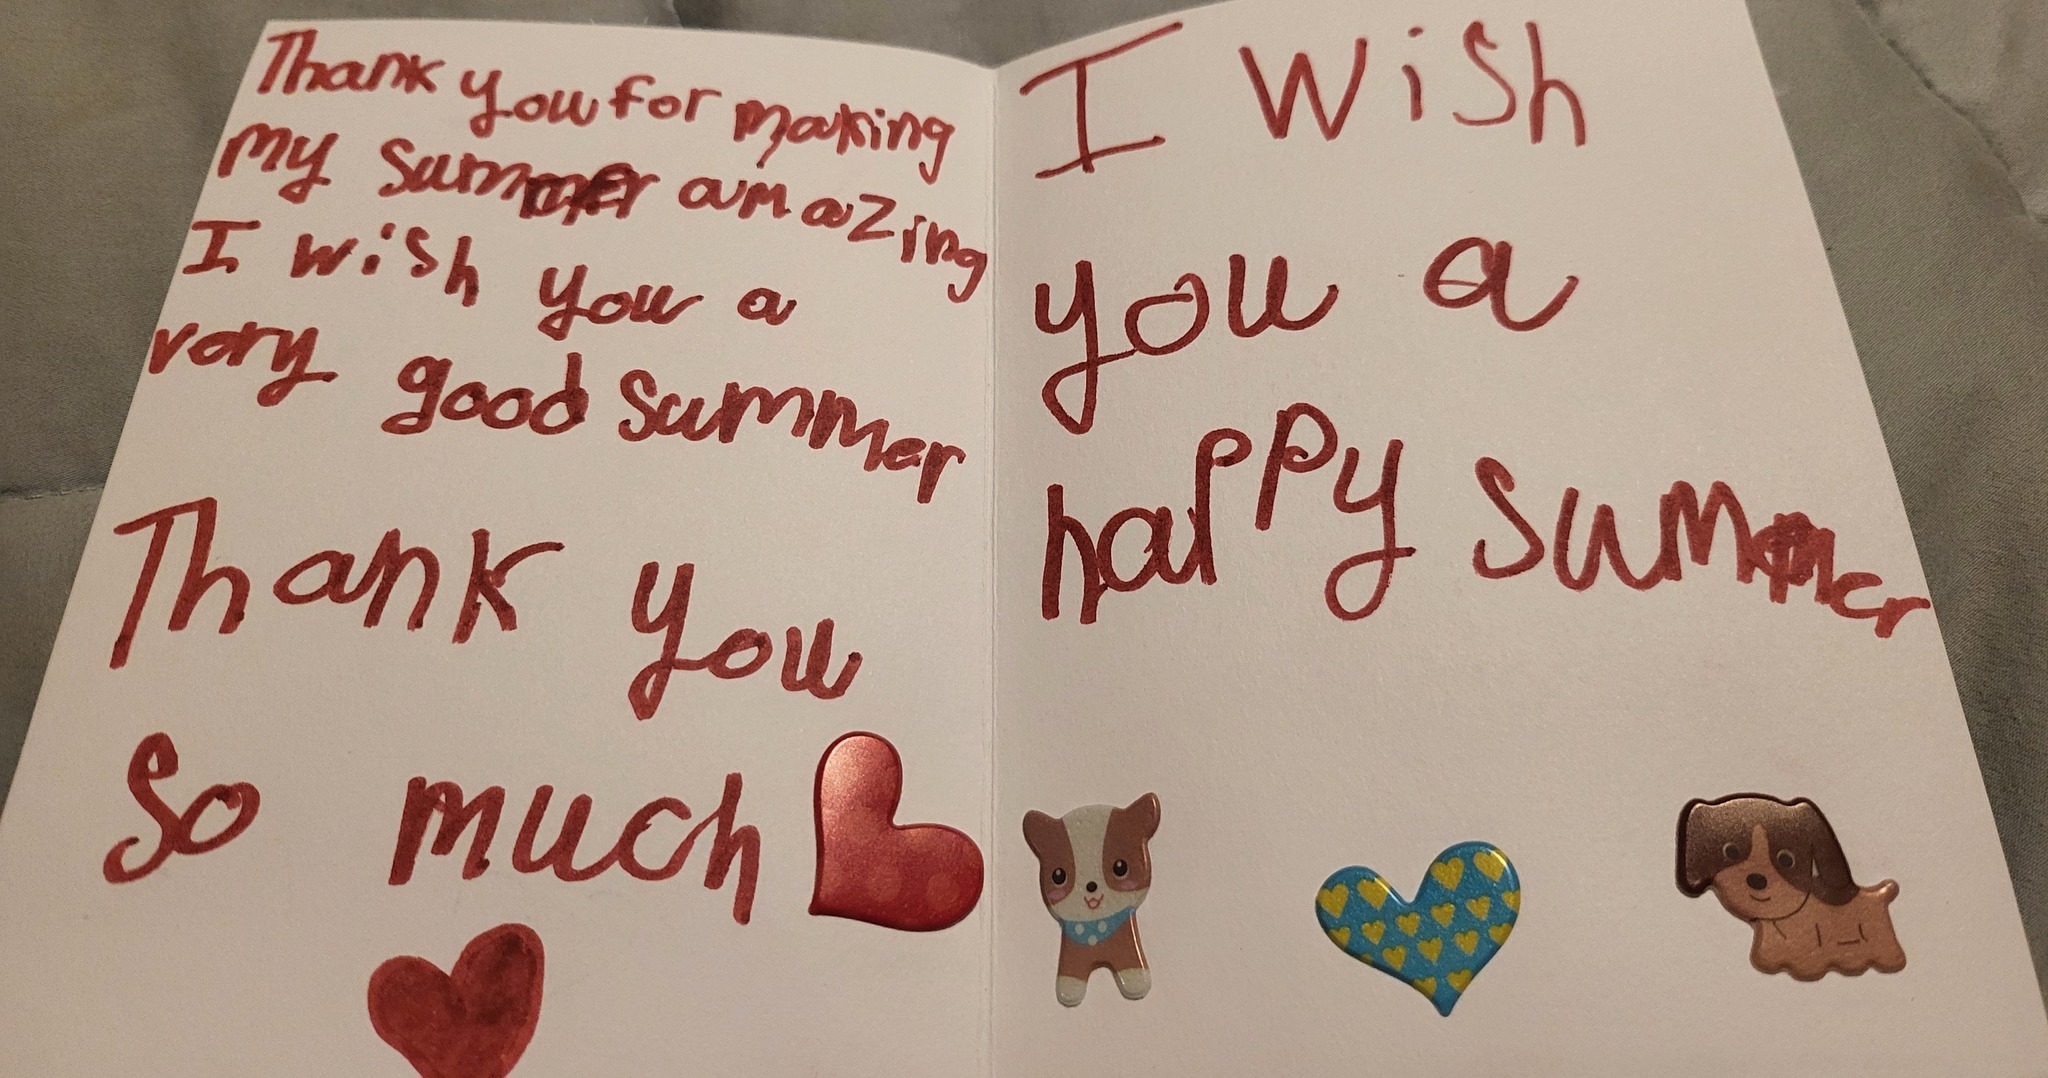 Thank you for making
my summer amazing
I wish you a
very good summer
Thank you
so much
I wish
you a
happy summer